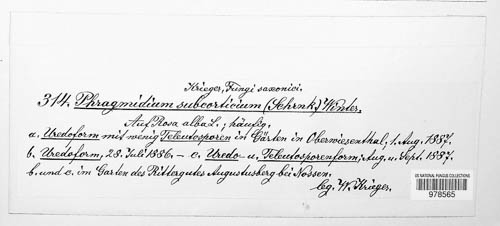 Krieger, Fungi saxonici.
314. Phragmidium subcorticium (Schrnk) Winter.
Auf Rosa alba L., häufig.
a. Uredoform mit wenig Teleutosporen in Gärten in Oberwiesenthal, 1. Aug. 1887.
b. Uredoform, 28. Juli 1886. – c. Uredo- u. Teleutosporenform, Aug. u. Sept. 1887.
b. und c. im Garten des Rittergutes Augustusberg bei Nossen.
leg. W. Krieger.
US NATIONAL FUNGUS COLLECTIONS
978565